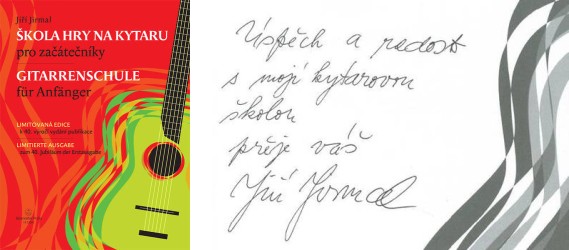 Jiří Jirmal
ŠKOLA HRY NA KYTARU
pro začátečníky
GITARRENSCHULE
für Anfänger
LIMITOVANÁ EDICE
k 40. výročí vydání publikace
LIMITIERTE AUSGABE
zum 40. Jubiläum der Erstausgabe
Úspěch a radost
s mojí kytarovou
školou
přeje váš
Jiří Jirmal